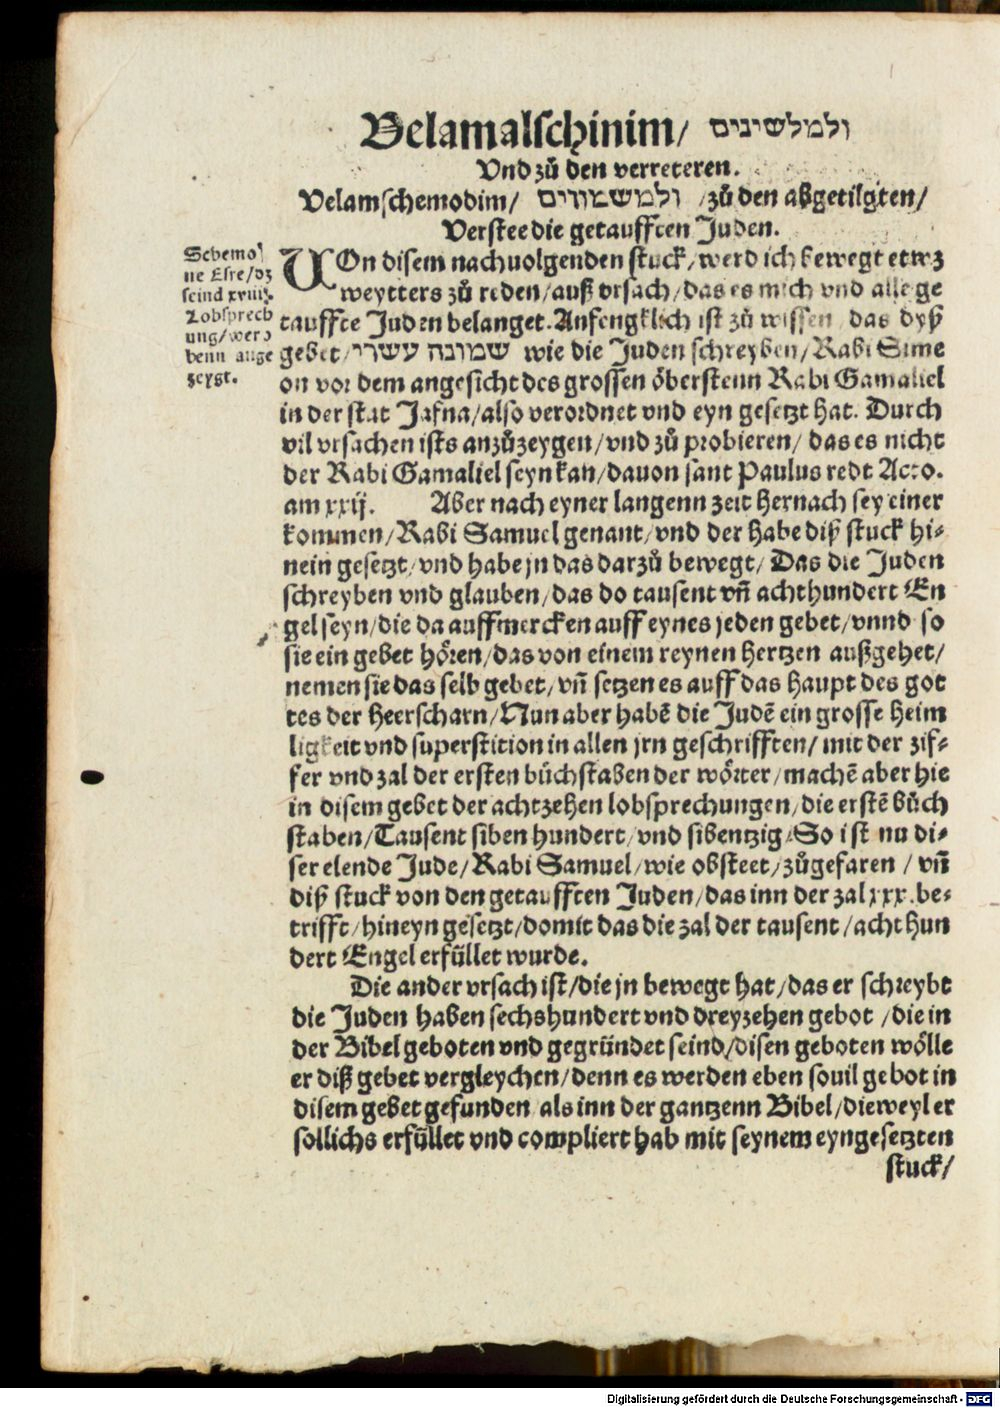 Velamalschinim/ ולמלשינים
Vnd zů den verreteren.
Velamschemodim/ ולמשמודים /zů den abgetilgten/
Verstee die getaufften Juden.
Schemo
ne Esre/dz
seind xviij.
Lobsprech
ung/wer
denn ange
zeygt.
VOn disem nachuolgenden stuck/werd ich bewegt etwz
weytters zů reden/auß vrsach/das es mich vnd alle ge
tauffte Juden belanget. Anfengklich ist zů wissen das dyß
gebet/שמונה עשרי wie die Juden schreyben/Rabi Sime
on vor dem angesicht des grossen öberstenn Rabi Gamaliel
in der stat Jafna/also verordnet vnd eyn gesetzt hat. Durch
vil vrsachen ists anzůzeygen/vnd zů probieren/das es nicht
der Rabi Gamaliel seyn kan/dauon sant Paulus redt Acto.
am xxij. Aber nach eyner langenn zeit hernach sey einer
kommen/Rabi Samuel genant/vnd der habe diß stuck hi-
nein gesetzt/vnd habe jn das darzů bewegt/Das die Juden
schreyben vnd glauben/das do tausent vñ achthundert En
gel seyn/die da auffmercken auff eynes jeden gebet/vnnd so
sie ein gebet hören/das von einem reynen hertzen außgehet/
nemen sie das selb gebet/vñ setzen es auff das haupt des got
tes der heerscharn/Nun aber habẽ die Judẽ ein grosse heim
ligkeit vnd superstition in allen jrn geschrifften/mit der zif-
fer vnd zal der ersten bůchstaben der wörter/machẽ aber hie
in disem gebet der achtzehen lobsprechungen/die erstẽ bůch
staben/Tausent siben hundert/vnd sibentzig/So ist nu di-
ser elende Jude/Rabi Samuel/wie obsteet/zůgefaren/vñ
diß stuck von den getaufften Juden/das inn der zal xxx.be-
trifft/hineyn gesetzt/domit das die zal der tausent/acht hun
dert Engel erfüllet wurde.
Die ander vrsach ist/die jn bewegt hat/das er schreybt
die Juden haben sechshundert vnd dreyzehen gebot/die in
der Bibel geboten vnd gegründet seind/disen geboten wölle
er diß gebet vergleychen/denn es werden eben souil gebot in
disem gebet gefunden als inn der gantzenn Bibel/dieweyl er
sollichs erfüllet vnd compliert hab mit seynem eyngesetzten
stuck/
Digitalisierung gefördert durch die Deutsche Forschungsgemeinschaft - DFG